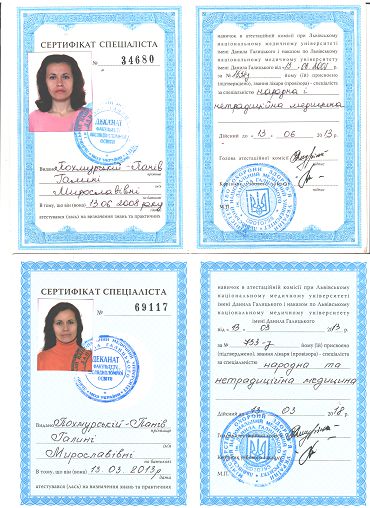 СЕРТИФІКАТ СПЕЦІАЛІСТА
№ 34680
ДЕКАНАТ
Видано Похмурській-Панів
Галині
Мирославівні
В тому, що він(вона) 13.06 2008 року
атестувався (лась) на визначення знань та практичних
навичок в атестаційній комісії при Львівському
національному медичному університеті
імені Данила Галицького і наказом по Львівському
національному медичному університеті
йому (їй) присвоєно
(підтверджено), звання лікаря (провізора) - спеціаліста
за спеціальністю народна і
нетрадиційна медицина
Дійсний до 13 06 2013р.
Голова атестаційної комісії
СЕРТИФІКАТ СПЕЦІАЛІСТА
№ 69117
ДЕКАНАТ
Видано Похмурській-Панів
Галині
Мирославівні
В тому, що він (вона) 13.03.2013р
атестувався (лась) на визначення знань та практичних
навичок в атестаційній комісії при Львівському
національному медичному університеті
імені Данила Галицького і наказом по Львівському
національному медичному університеті
імені Данила Галицького
від 13 03 2013р.
за № 753-з йому (їй) присвоєно
(підтверджено), звання лікаря (провізора) - спеціаліста
за спеціальністю народна та
нетрадиційна медицина
Дійсний до 13 03 2018р.
М.П.